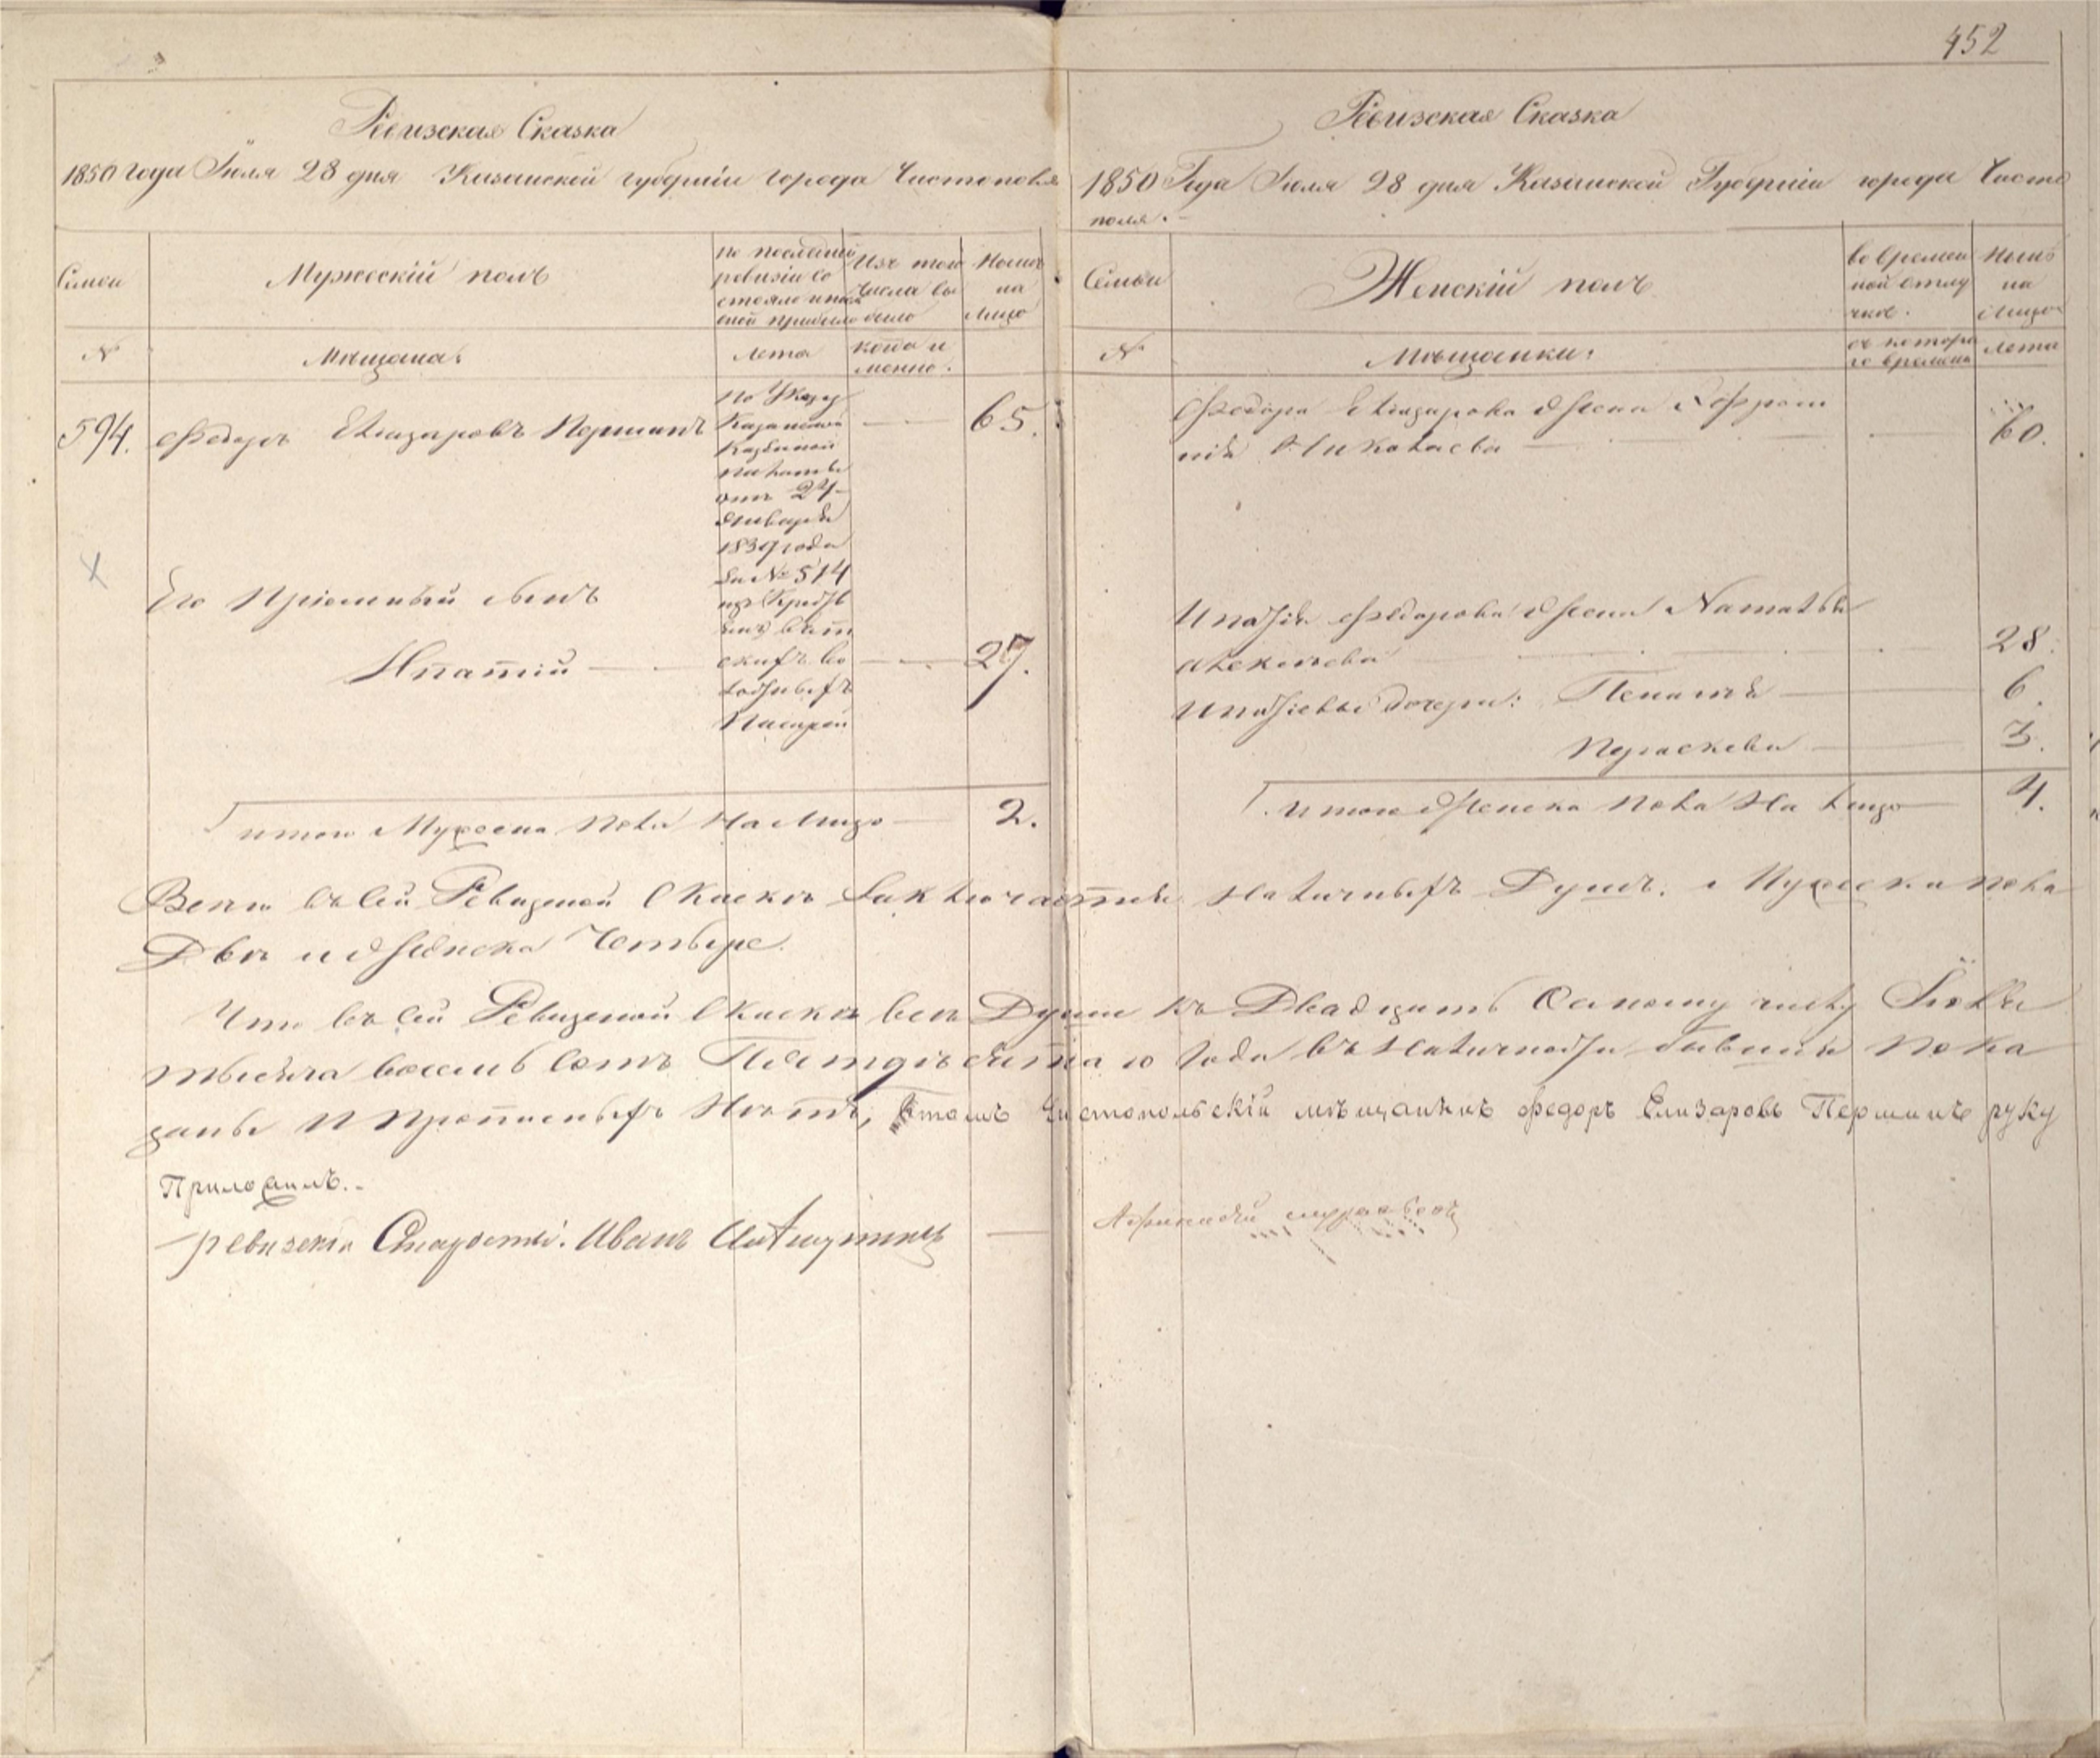 452
Ревизская Сказка
1850 года Іюля 28 дня Казанской губерніи города Чистополя
Семьи
Мужескій полъ
по последней
ревизіи со
стояло и после
оной прибыло
Изъ того
числа вы
было
Ныне
на
лицо
№
Мѣщана:
лета
когда и
менно.
594.
Федоръ Елизаровъ Першинъ
65.
по Указу
Казанской
Казенной
палаты
отъ 24
Января
1839 года
за № 514
Его Пріемный сынъ
Ипатій
27.
итого Мужеска пола на лицо
2.
Ревизская Сказка
1850 Года Іюля 28 дня Казанской Губерніи города Чисто
поля.
Семьи
Женскій полъ
во времен
ной отлу
чке.
Ныне
на
лицо
№
Мѣщанки:
съ котора
го времени
лета
Федора Елизарова Жена Ефроси
нія Николаева
60.
Ипатія Федорова Жена Наталья
Алексеева
28.
Ипатіевы дочери: Пелагея
6.
Параскева
3.
итого Женска пола на лицо
4.
Всего въ сей Ревизской Сказке заключается наличныхъ Душъ: Мужеска пола
Две и Женска Четыре.
Что въ сей Ревизской Сказке все Души къ Двадцать Осмому числу Іюля
тысяча восемь сотъ Пятдесята го Года въ наличности бывшия пока
заны и прописныхъ Нетъ, втомъ Чистопольскій мѣщанинъ Федоръ Елизаровъ Першинъ руку
Приложилъ.
ревизскій Староста Иванъ